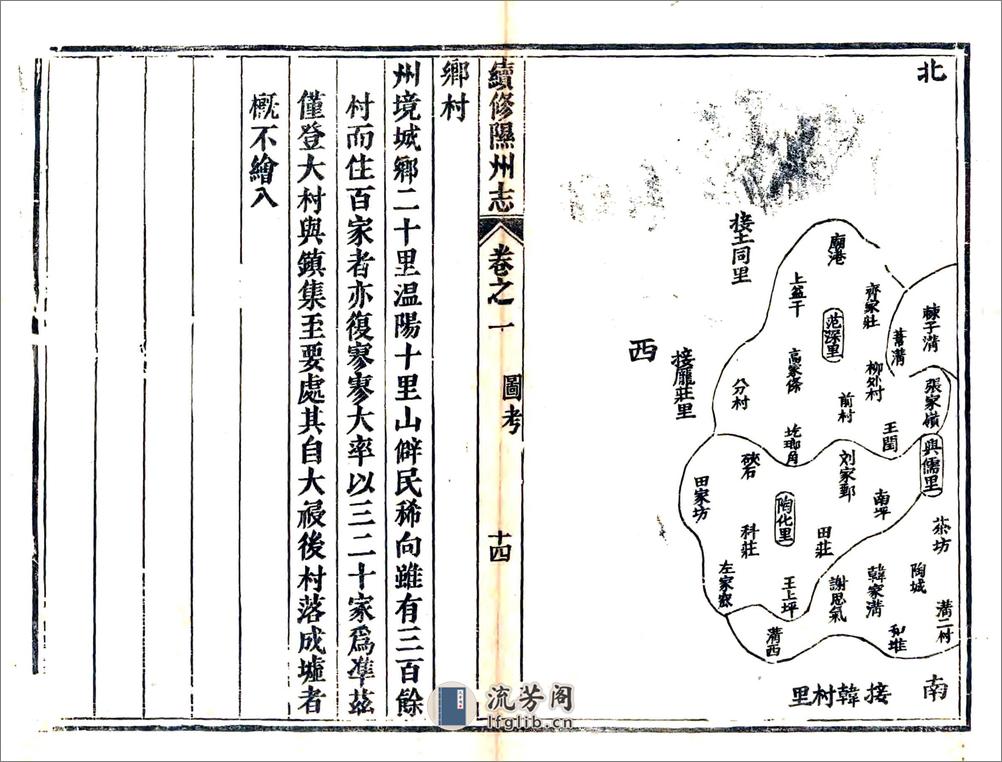 北
接土同里
西
接龐莊里
廟港
上益千
齊家莊
范深里
棘子溝
高家條
柳外村
八分村
前村
王閏
張家嶺
興儒里
圪瑯角
硤石
刘家鄄
南坪
田家坊
陶化里
科莊
田莊
茶坊
陶城
左家窽
王上坪
謝恩氣
韓家溝
溝二村
溝西
和堆
南
接韓村里
續修隰州志
卷之一
圖考
十四
鄉村
州境城鄉二十里温陽十里山僻民稀向雖有三百餘
村而住百家者亦復寥寥大率以三二十家爲準茲
僅登大村與鎮集至要處其自大祲後村落成墟者
概不繪入
流芳阁
lfglib.cn